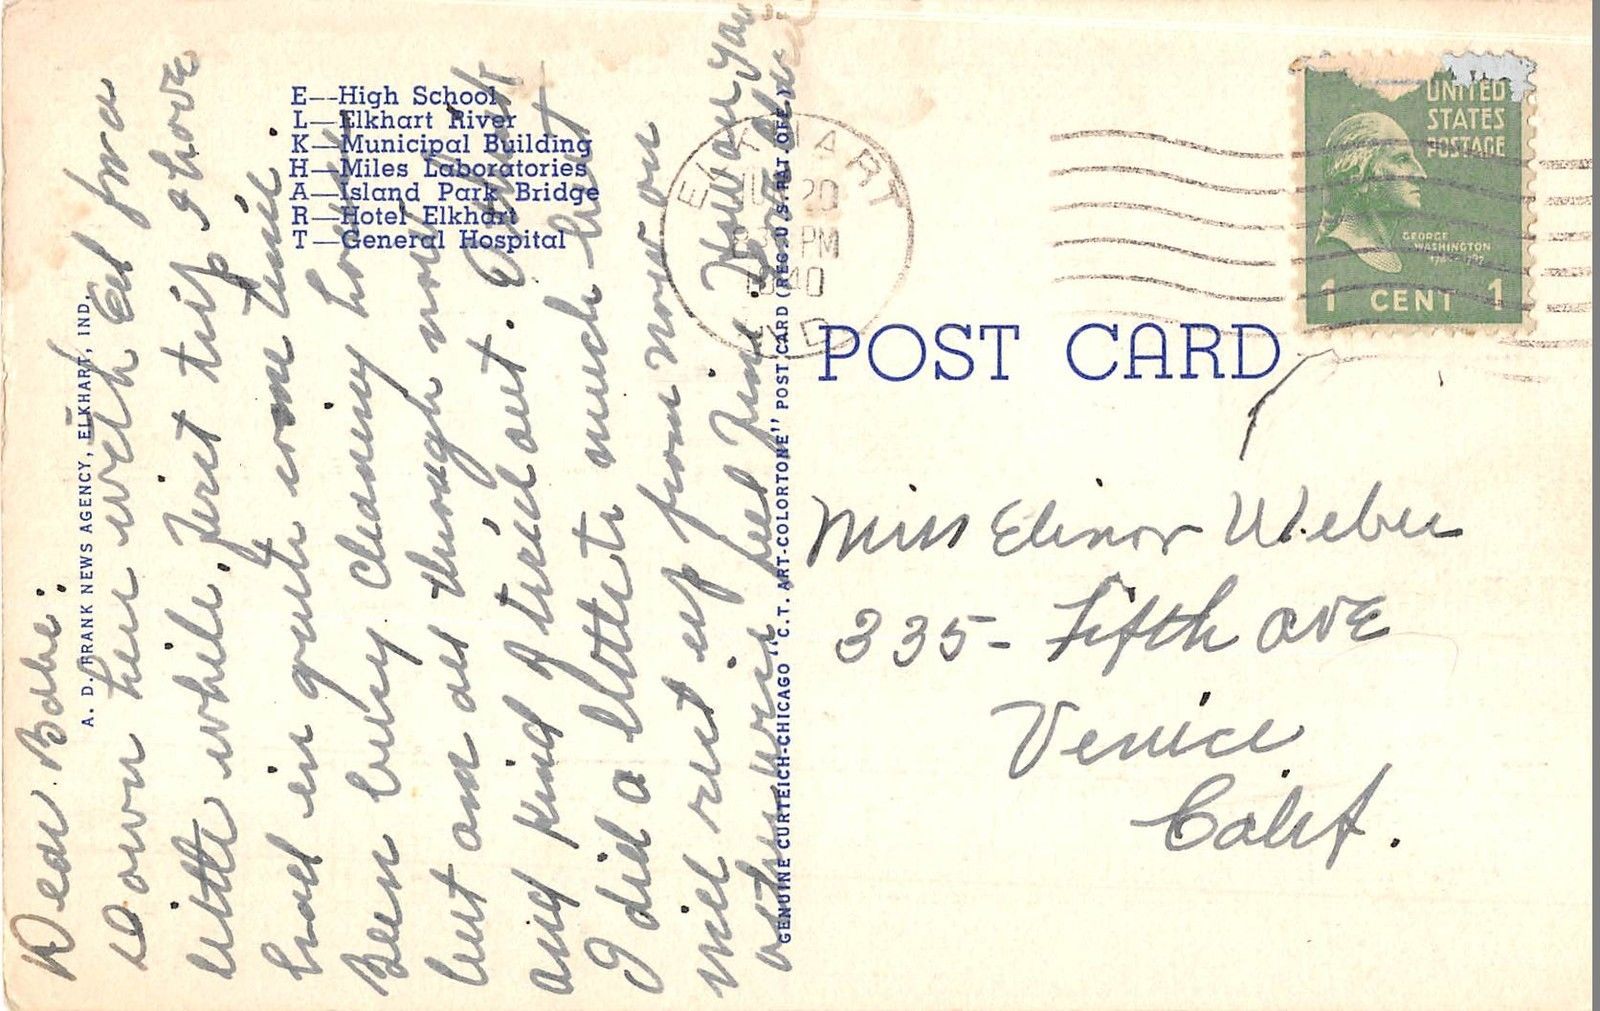 E—High School
L—Elkhart River
K—Municipal Building
H—Miles Laboratories
A—Island Park Bridge
R—Hotel Elkhart
T—General Hospital
A. D. FRANK NEWS AGENCY, ELKHART, IND.
Dear Babe:
Down here with Ed for a
little while. First trip I have
had in quite some time.
Been busy cleaning house
but am all through now
and kind of tired out. I think
I did a little too much but
will rest up from now on
otherwise feel fine. How are you
GENUINE CURTEICH-CHICAGO "C.T. ART-COLORTONE" POST CARD (REG. U.S. PAT. OFF.)
ELKHART
20
PM
1940
IND
UNITED
STATES
POSTAGE
GEORGE
WASHINGTON
1 CENT 1
POST CARD
Miss Elinor Weber
335- Fifth AVE
Venice
Calif.